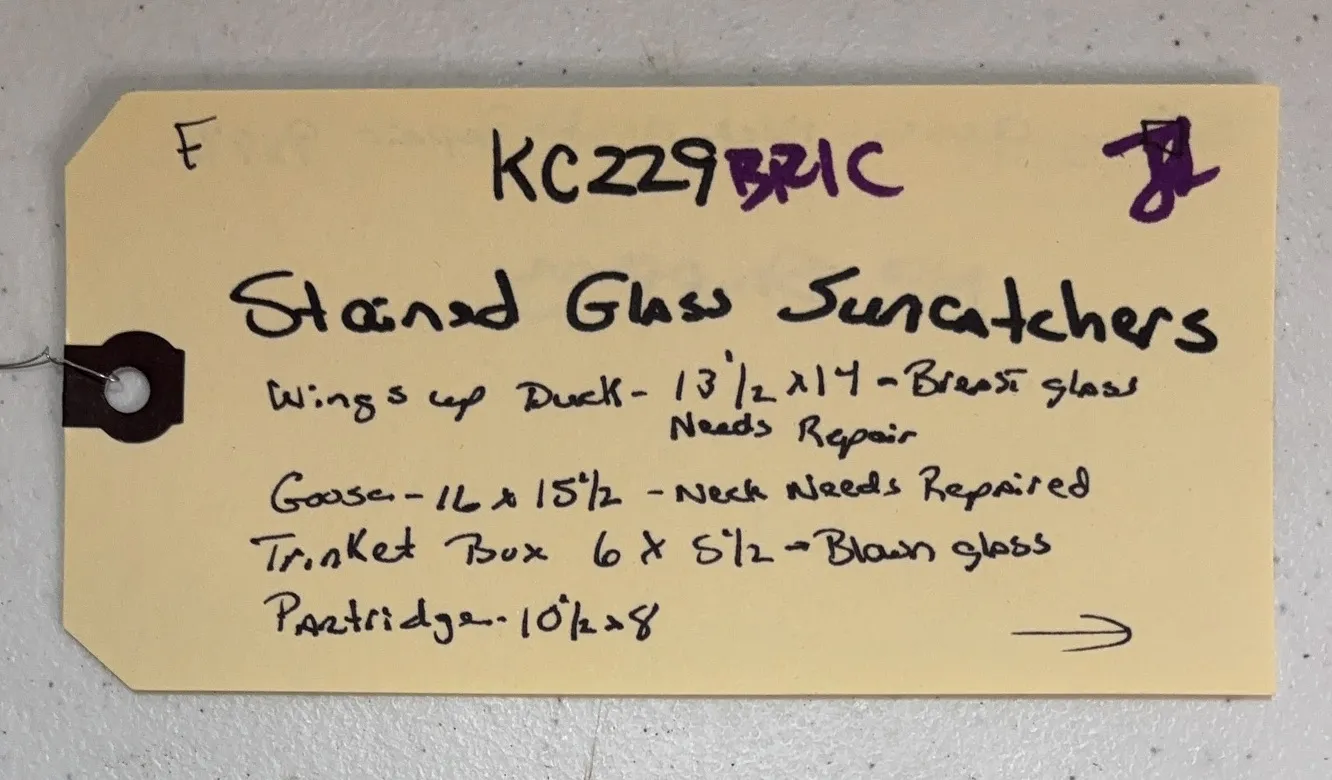 F
KC229BR1C
Stained Glass Suncatchers
Wings up Duck - 13 1/2 x 14 - Breast glass
Needs Repair
Goose - 16 x 15 1/2 - Neck Needs Repaired
Trinket Box 6 x 5 1/2 - Blown glass
Partridge - 10 1/2 x 8